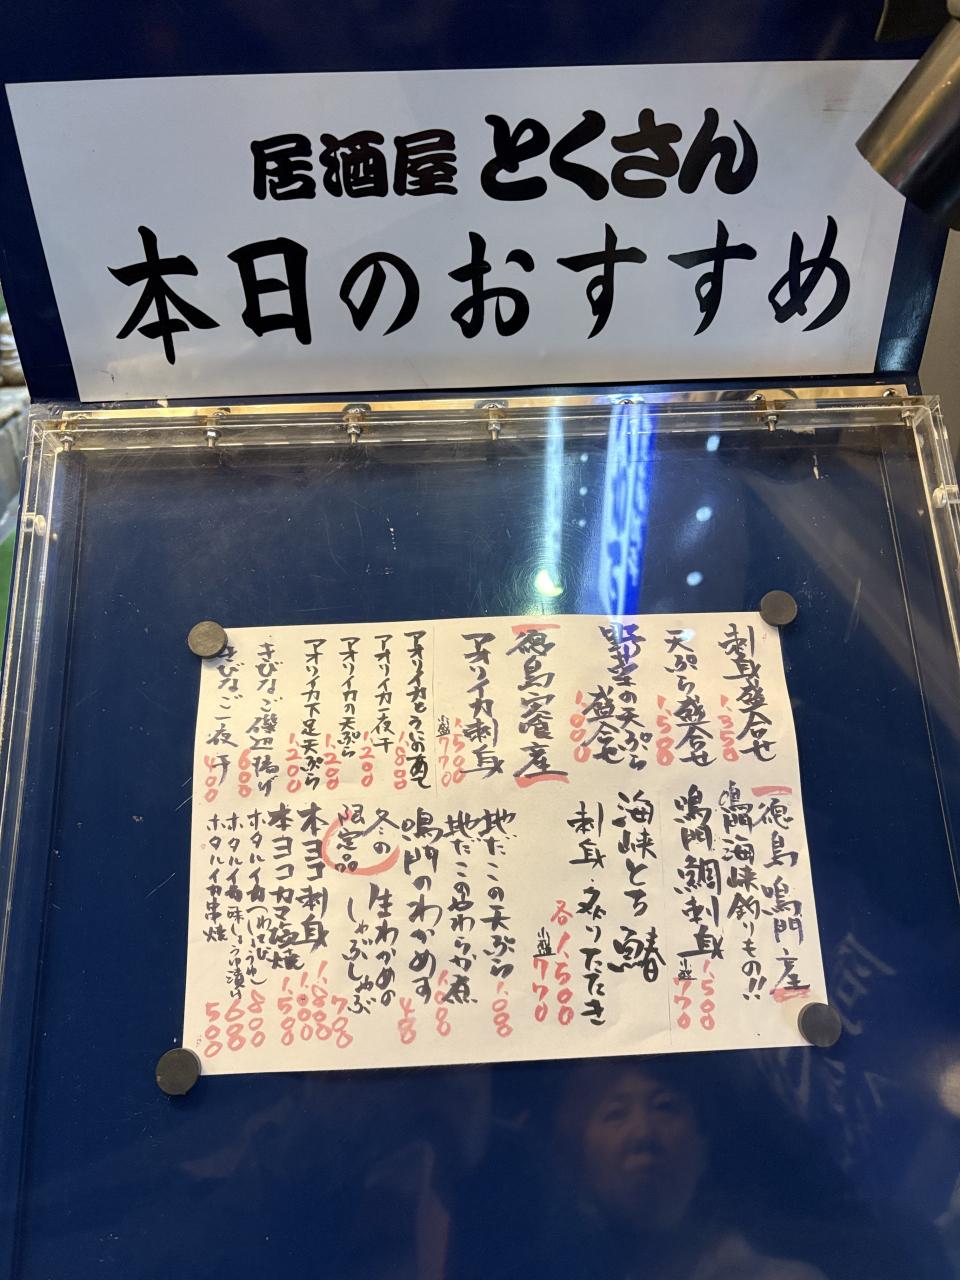 居酒屋 とくさん
本日のおすすめ
刺身盛合せ
1,350
天ぷら盛合せ
1,580
野菜の天ぷら
盛合せ
1,000
徳島
産
アオリイカ刺身
1,500
小盛770
アオリイカとうにの和え
1,800
アオリイカ一夜干
1,200
アオリイカの天ぷら
1,200
アオリイカ下足天ぷら
1,200
きびなご磯辺揚げ
600
きびなご一夜干
400
徳島 鳴門産
鳴門海峡釣りもの!!
鳴門鯛刺身
1,500
小盛770
海峡とち鰆
刺身・炙りたたき
各1,500
小盛770
地だこの天ぷら
地だこのやわらか煮
鳴門のわかめす
冬の
限定品
生わかめの
しゃぶしゃぶ
780
本ヨコ刺身
本ヨコカマ塩焼
ホタルイカ
800
ホタルイカ
680
ホタルイカ串焼
500